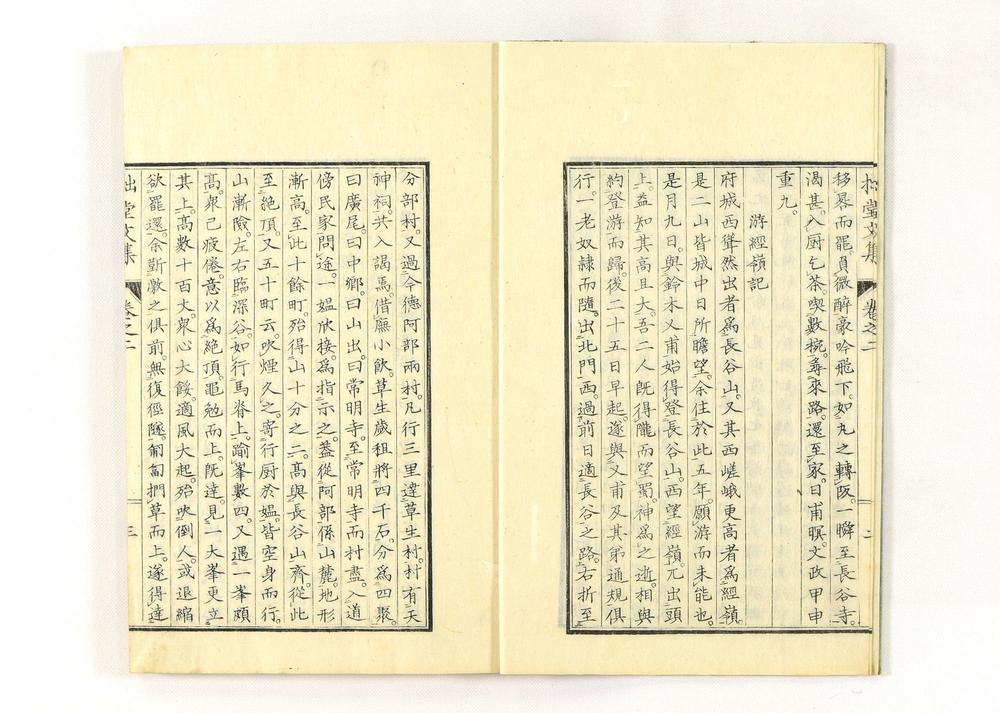 拙堂文集
卷之二
二
移晷而罷頁微醉豪吟飛下如丸之轉阪一瞬至長谷寺。
渴甚入厨乞茶喫數椀尋來路還至家日甫暝文政甲申
重九。
游經嶺記
府城西聳然出者爲長谷山又其西嵯峨更高者爲經嶺。
是二山皆城中日所瞻望余住於此五年願游而未能也。
是月九日與鈴木乂甫始得登長谷山西望經嶺兀出頭
上益知其高且大吾二人既得隴而望蜀神爲之逝相與
約登游而歸後二十五日早起遂與乂甫及其弟通規俱
行一老奴隷而隨出北門西過前日適長谷之路右折至
分部村又過今德阿部兩村凡行三里達草生村村有天
神祠共入謁焉借廡小飲草生歲租將四千石分爲四聚。
曰廣尾曰中鄉曰山出曰常明寺至常明寺而村盡入道
傍民家問途一媼欣接爲指示之蓋從阿部係山麓地形
漸高至此十餘町殆得山十分之二高與長谷山齊從此
至絶頂又五十町云吹煙久之寄行厨於媼皆空身而行。
山漸險左右臨深谷如行馬脊上踰峯數四又遇一峯頗
高衆已疲倦意以爲絶頂黽勉而上既達見一大峯更立
其上高數十百丈衆心大餒適風大起殆吹倒人或退縮
欲罷還余斬敷之俱前無復徑隧匍匐捫草而上遂得達
拙堂文集
卷之二
三